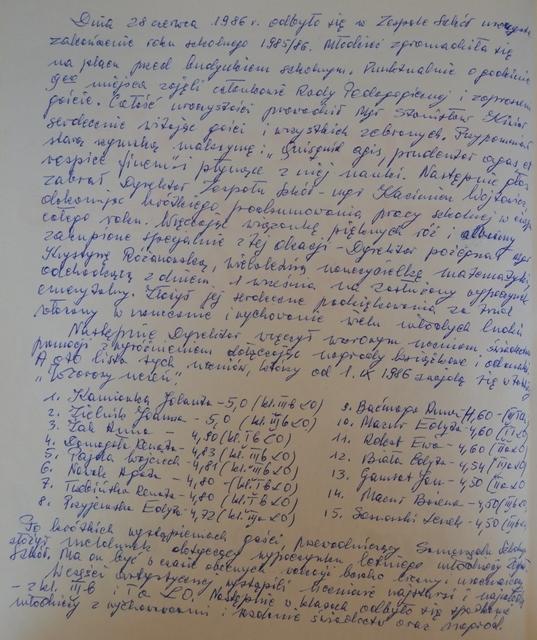 Dnia 28 czerwca 1986 r. odbyło się w Zespole Szkół uroczyste
zakończenie roku szkolnego 1985/86. Młodzież zgromadziła się
na placu przed budynkiem szkolnym. Punktualnie o godzinie
9oo miejsca zajęli członkowie Rady Pedagogicznej i zaproszeni
goście. Całość uroczystości prowadził mgr Stanisław
serdecznie witając gości i wszystkich zebranych. Przypomniał
starą rzymską maksymę: "Quidquid agis, prudenter agas, et
respice finem" i płynące z niej nauki. Następnie głos
zabrał Dyrektor Zespołu Szkół - mgr Kazimierz Wójtowicz
dokonując krótkiego podsumowania pracy szkolnej w ciągu
całego roku. Wręczając wiązankę pięknych róż i albumy
zakupione specjalnie z tej okazji - Dyrektor pożegnał mgr
Krystynę Rożanowską, wieloletnią nauczycielkę matematyki,
odchodzącą z dniem 1 września na zasłużony odpoczynek
emerytalny. Złożył jej serdeczne podziękowania za trud
włożony w nauczanie i wychowanie wielu młodych ludzi.
Następnie Dyrektor wręczył wzorowym uczniom świadectwa
promocji z wyróżnieniem dołączając nagrody książkowe i odznaki
A oto lista tych uczniów, którzy od 1. IX 1986 znajdą się w
"Wzorowy uczeń."
1. Kamionka Jolanta - 5,0 (kl. III b LO)
2. Zielnik Joanna - 5,0 (kl. III b LO)
3. Żak Anna - 4,90 (kl. I b LO)
4. Renata - 4,83 (kl. III b LO)
5. Pajda Wojciech - 4,81 (kl. III b LO)
6. Nowak Agata - 4,80
7. Renata - 4,80 (kl. I b LO)
8. Przyjemska Edyta - 4,72 (kl. III a LO)
9. Anna - 4,60 - (III
10. Mazur Edyta - 4,60
11. Robert Ewa - 4,60
12. Biała Edyta - 4,54
13. Jan - 4,50 (II a LO
14. Mazur Bożena - 4,50 (III b LO
15. Leszek - 4,50
Po krótkich wystąpieniach gości, przewodniczący Samorządu Szkolnego
złożył meldunek dotyczący wypoczynku letniego młodzieży
Szkół. Ma on być w czasie obecnych wakacji bardzo liczny i urozmaicony
W części artystycznej wystąpili uczniowie najstarsi i najmłodsi
- z kl. III b i I a L.O. Następnie w klasach odbyło się spotkanie
młodzieży z wychowawcami i rozdanie świadectw oraz nagród.